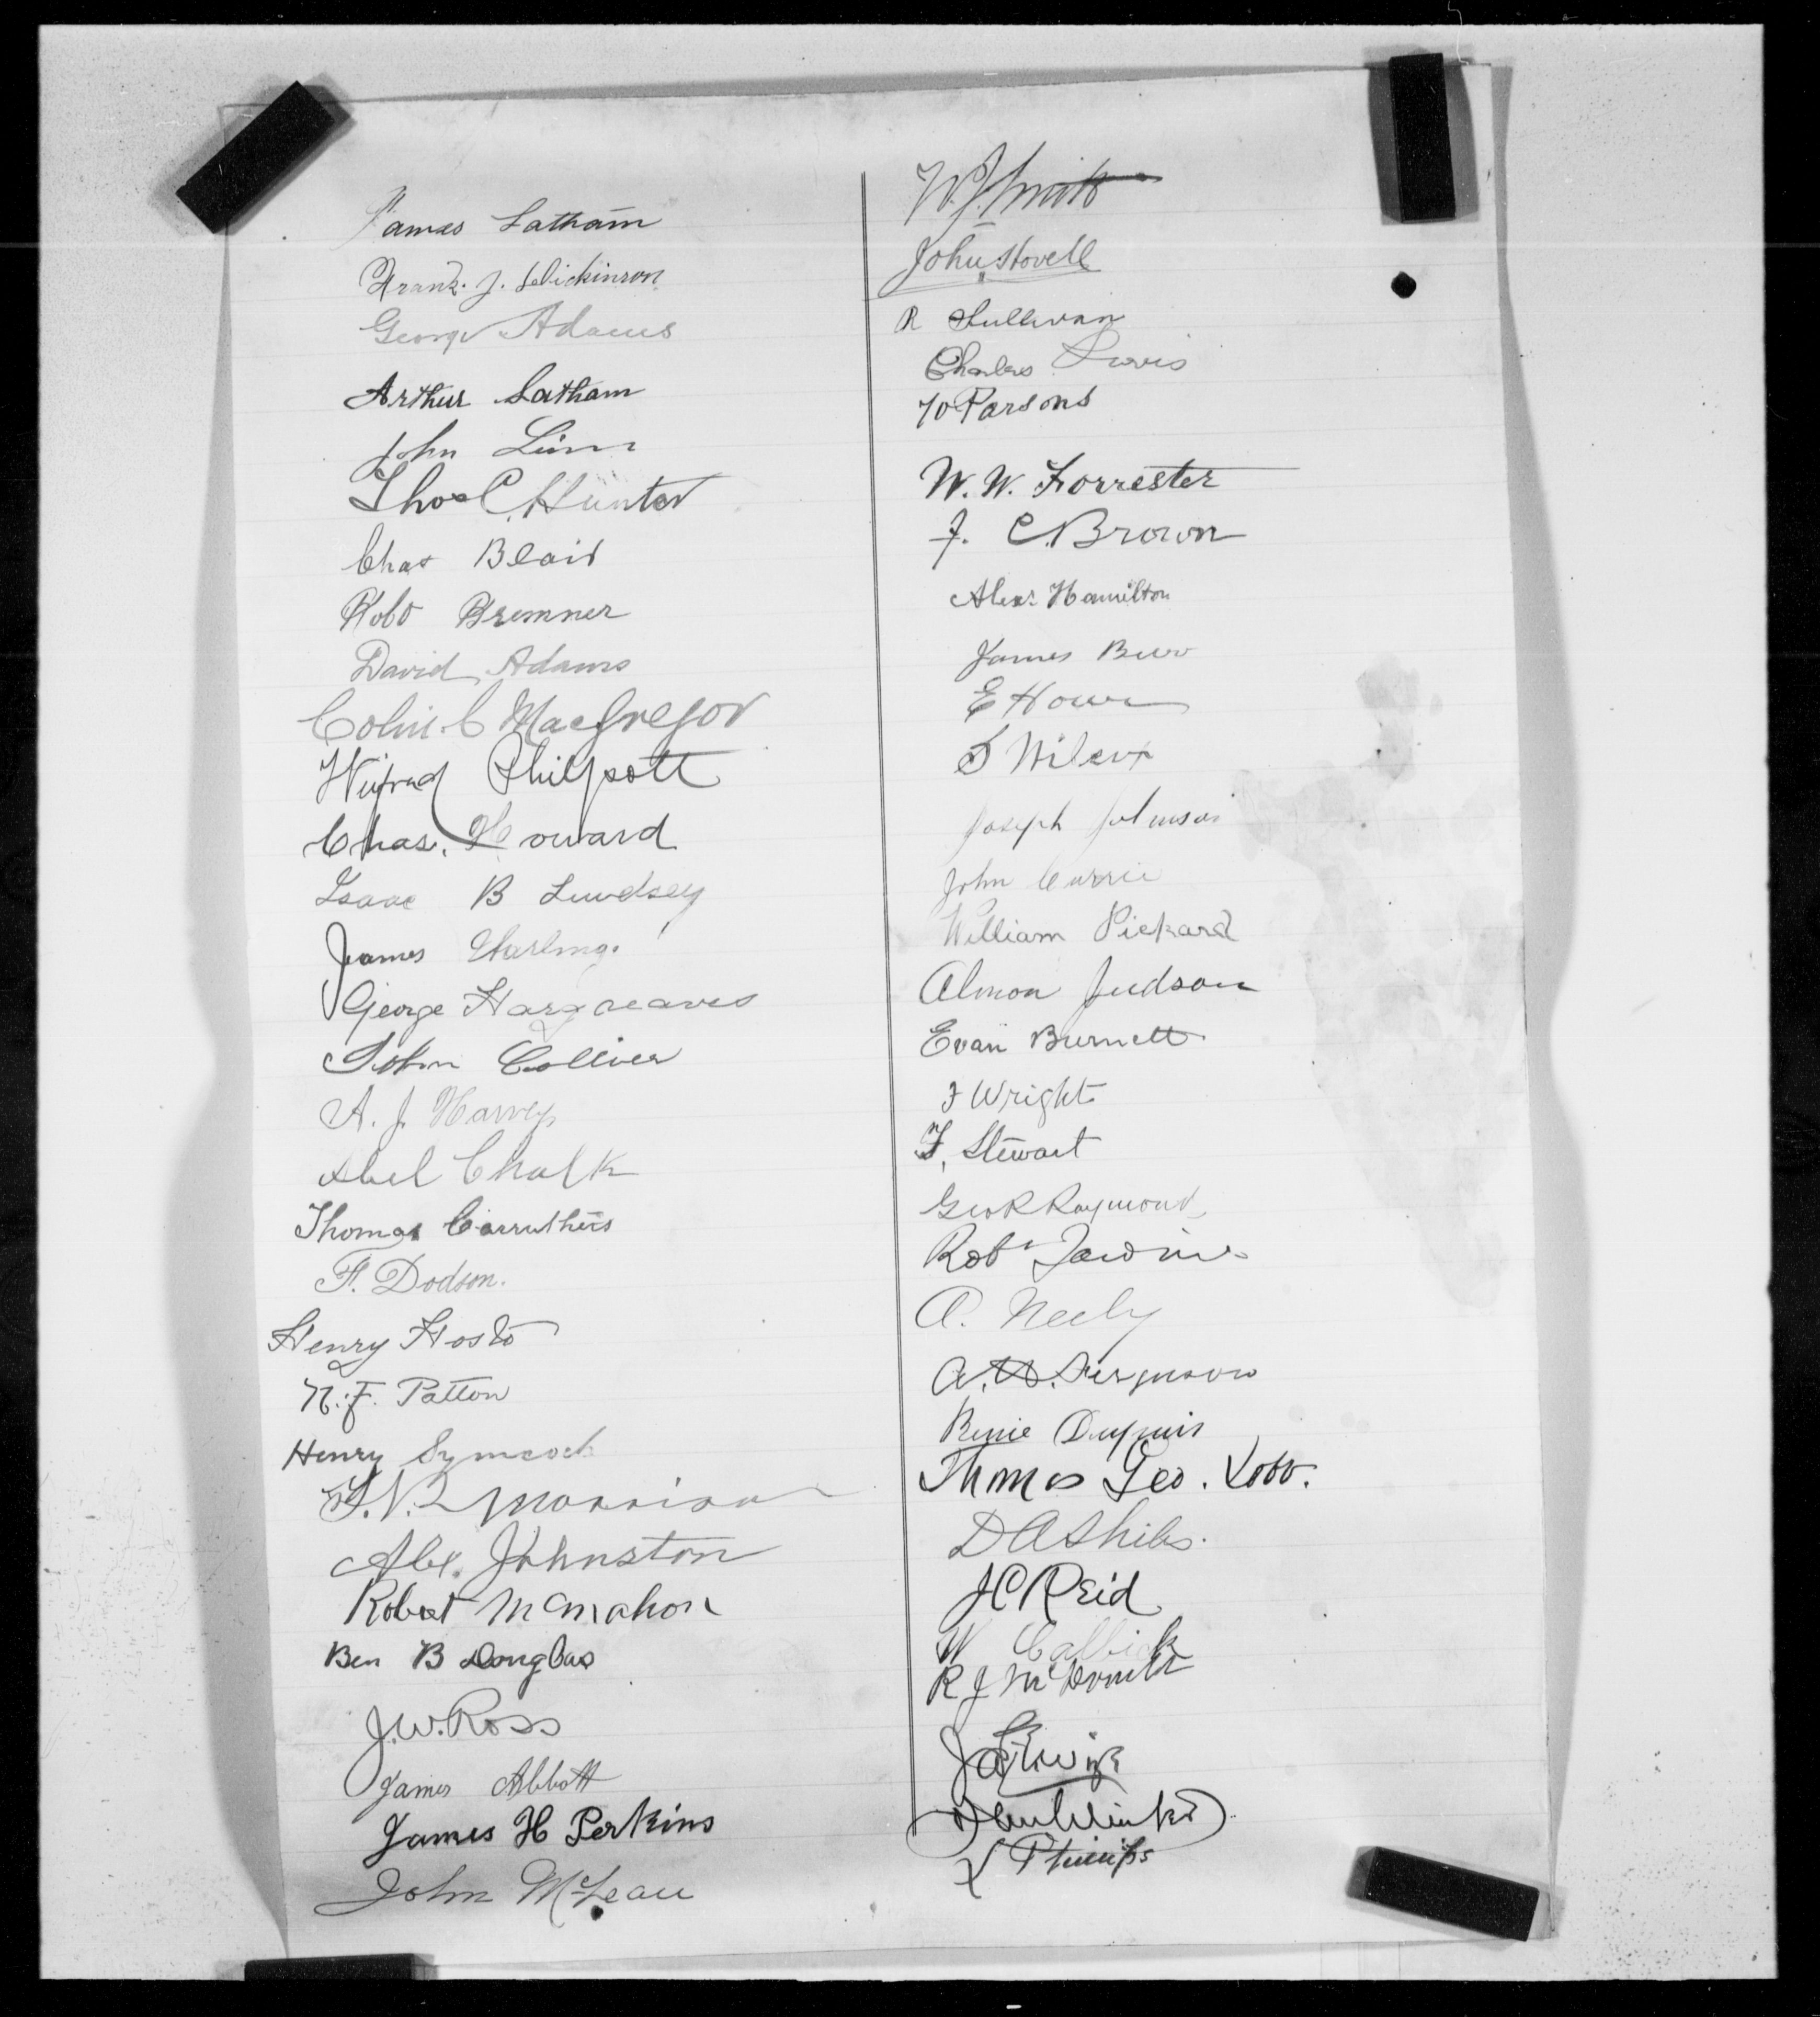 James Latham
Frank. J. Dickinson
George Adams
Arthur Latham
John Linn
Thos C. Hunter
Chas Blair
Robt Bremner
David Adams
Colin C MacGregor
Wilfred Philpott
Chas. Howard
Isaac B Lindsey
James
George Hargreaves
John Collier
A. J. Harvey
Abel Chalk
Thomas Carruthers
F. Dodson.
Henry
N. F. Patton
Henry Symcock
Morrison
Alex. Johnston
Robert McMahon
Ben B Douglas
J. W. Ross
James Abbott
James H Perkins
John McLean
W. J. Smith
John Stovell
R Sullivan
Charles
W Parsons
W. W. Forrester
J. C. Brown
Alexr Hamilton
James
E Howe
S Wilcox
Joseph Johnson
John Currie
William Pickard
Almon Judson
Evan Burnett
F Wright
F. Stewart
Geo R Raymond
Robt Jardine
A. Neely
A. W. Ferguson
Dupuis
Thomas Geo.
D A
J C Reid
W Calbick
R J
J
Phillips